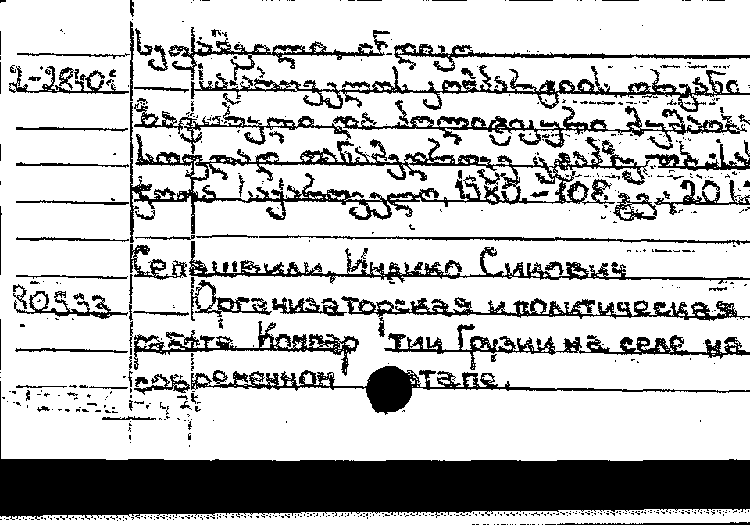 სეფაშვილი, ინდიკო
2-28401 საქართველოს კომპარტიის ორგანი
ზატორული და პოლიტიკური მუშაობა
სოფლად თანამედროვე ეტაპზე. თბ.: საბ
ჭოთა საქართველო, 1980.-108 გვ.; 20 ს
Сепашвили, Индико Симович
80.933 Организаторская и политическая
работа Компар тии Грузии на селе на
современном этапе.